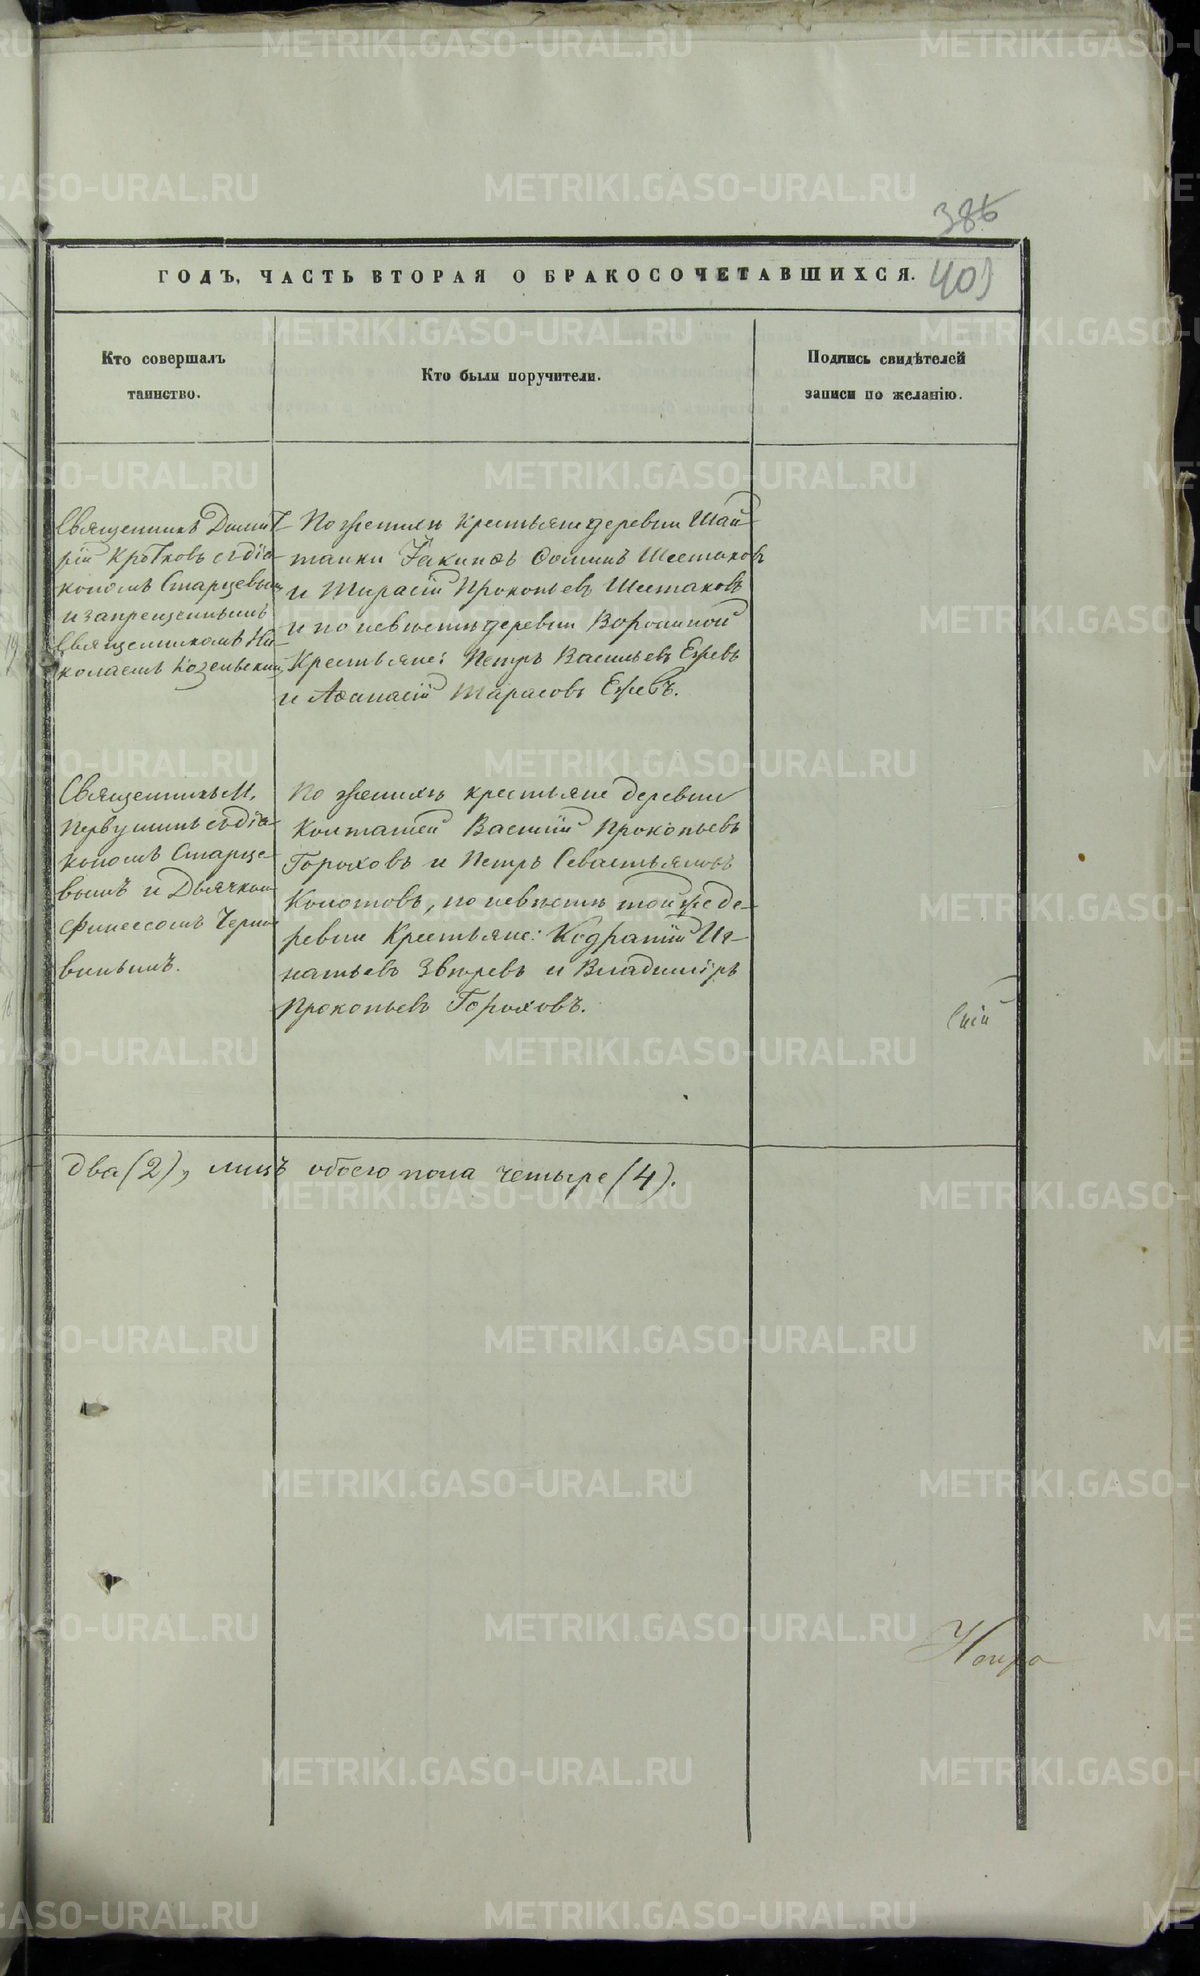 386
403
ГОДЪ, ЧАСТЬ ВТОРАЯ О БРАКОСОЧЕТАВШИХСЯ.
Кто совершалъ
таинство.
Кто были поручители.
Подпись свидѣтелей
записи по желанію.
Священникъ Димит-
рій Кротковъ съ діа-
кономъ Старцевым
и запрещеннымъ
Священникомъ Ни-
колаемъ Козельским
По женихѣ крестьяне деревни Шай-
танки Іакинѳъ Ѳоминъ Шестаковъ
и Тарасій Прокопьевъ Шестаковъ
и по невѣстѣ деревни Ворониной
Крестьяне: Петръ Васильевъ Ежевъ
и Аѳанасій Тарасовъ Ежевъ.
Священникъ М.
Первушинъ съ діа-
кономъ Старце-
вымъ и Дьячком
Финеесомъ Черна-
винымъ.
По женихѣ крестьяне деревни
Колташей Василій Прокопьевъ
Гороховъ и Петръ Севастьяновъ
Колотовъ, по невѣстѣ той же де-
ревни Крестьяне: Кодратій Иг-
натьевъ Звѣревъ и Владиміръ
Прокопьевъ Гороховъ.
Сій
два (2), лицъ обоего пола четыре (4).